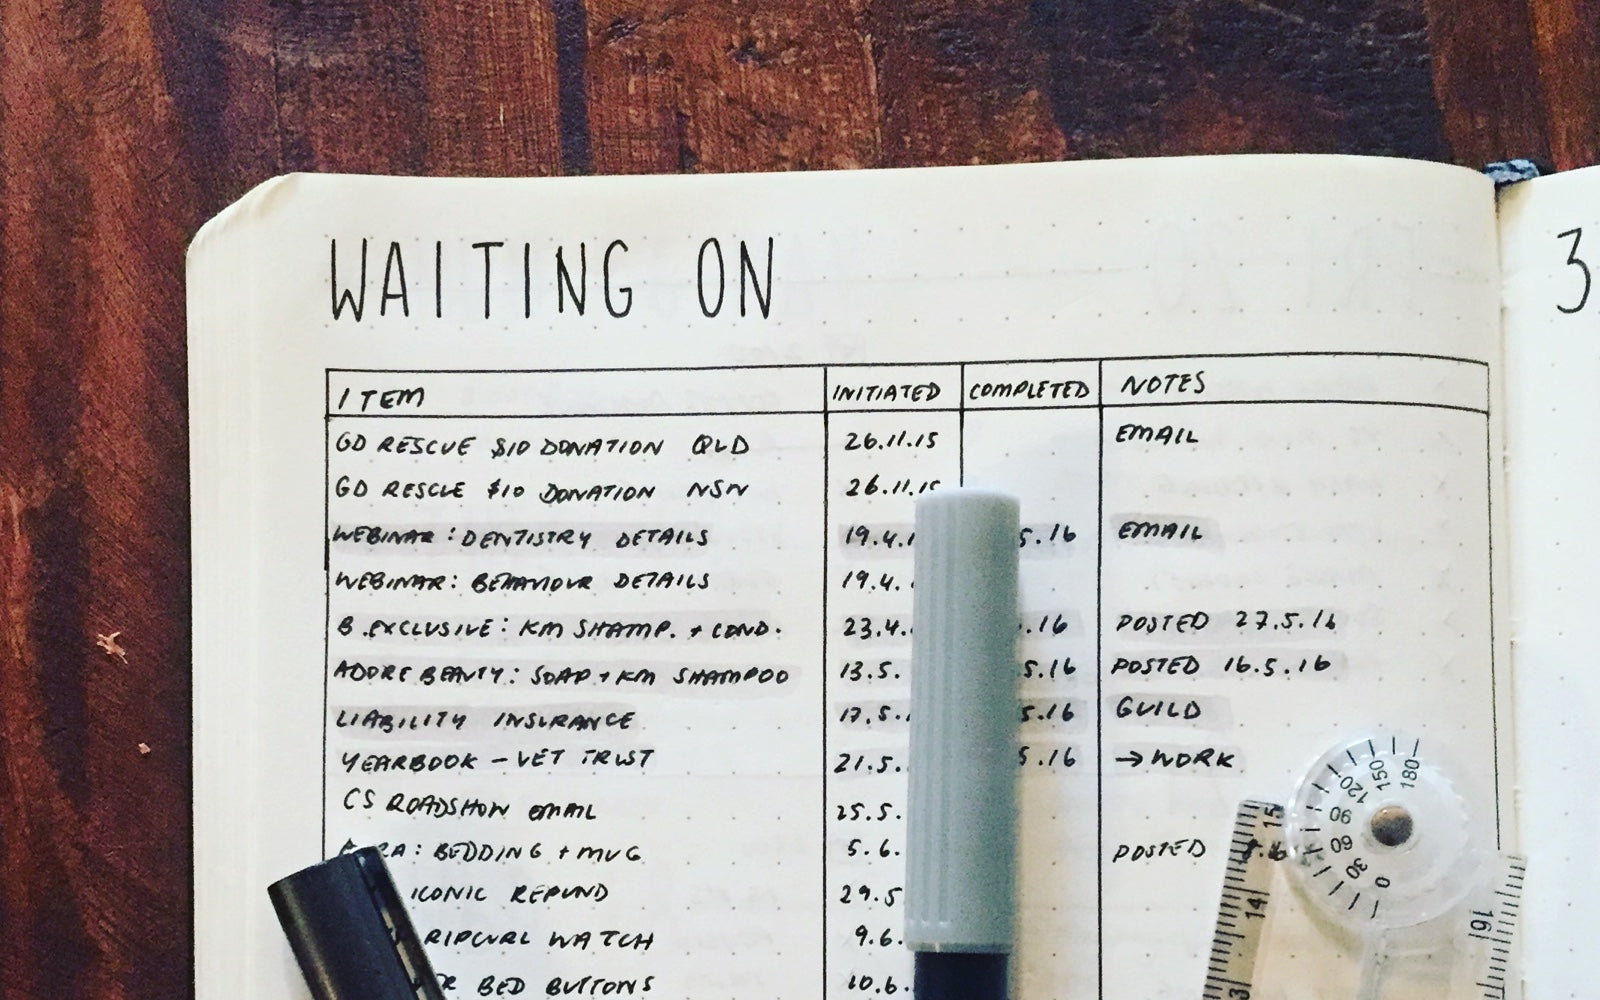 WAITING ON
3
ITEM INITIATED COMPLETED NOTES
GD RESCUE $10 DONATION QLD 26.11.15 EMAIL
GD RESCUE $10 DONATION NSW 26.11.15
WEBINAR: DENTISTRY DETAILS 19.4.1 5.16 EMAIL
WEBINAR: BEHAVIOUR DETAILS 19.4.
B.EXCLUSIVE: KM SHAMP. + COND. 23.4. .16 POSTED 27.5.16
ADORE BEAUTY: SOAP + KM SHAMPOO 13.5. 5.16 POSTED 16.5.16
LIABILITY INSURANCE 17.5. 5.16 GUILD
YEARBOOK - VET TRUST 21.5. 5.16 → WORK
CS ROADSHOW EMAIL 25.5.
BEDDING + MUG 5.6. POSTED
ICONIC REFUND 29.5
RIPCURL WATCH 9.6.
BED BUTTONS 10.6.
180
150
120
90
60
30
0
15
14
13
16